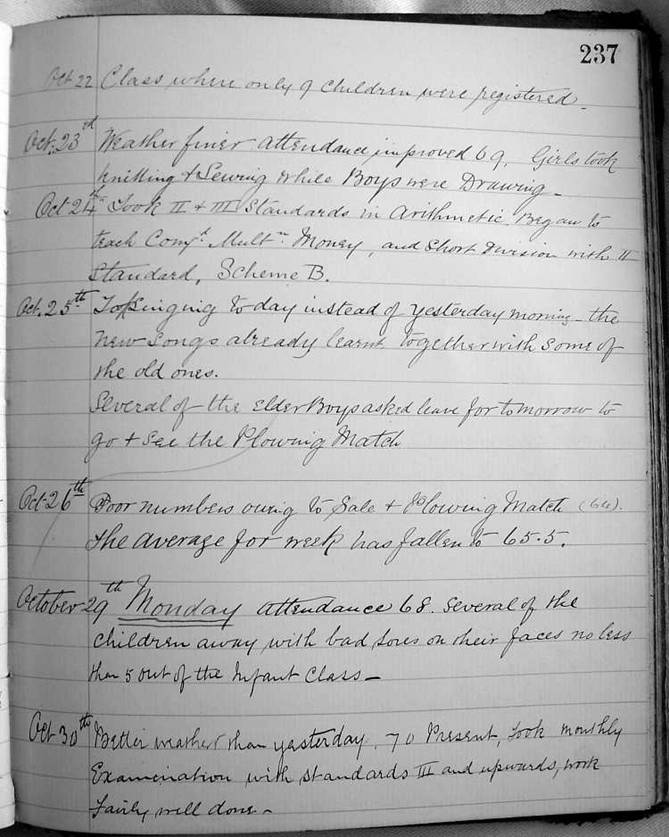 237
Oct 22 Class where only 9 children were registered.
Oct. 23rd Weather finer attendance improved 69. Girls took
knitting & Sewing while Boys were Drawing -
Oct 24th Took II & III Standards in Arithmetic. Began to
teach Compd. Multn. Money, and Short Division with II
Standard, Scheme B.
Oct. 25th Singing today instead of yesterday morning - the
new songs already learnt together with some of
the old ones.
Several of the Elder Boys asked leave for tomorrow to
go & see the Plowing Match
Oct 26th Poor numbers owing to Sale & Plowing Match (64).
The average for week has fallen to 65.5.
October 29th Monday attendance 68. Several of the
children away with bad sores on their faces no less
than 5 out of the Infant Class -
Oct 30th Better weather than yesterday. 70 Present, Took monthly
Examination with Standards III and upwards, work
fairly well done -